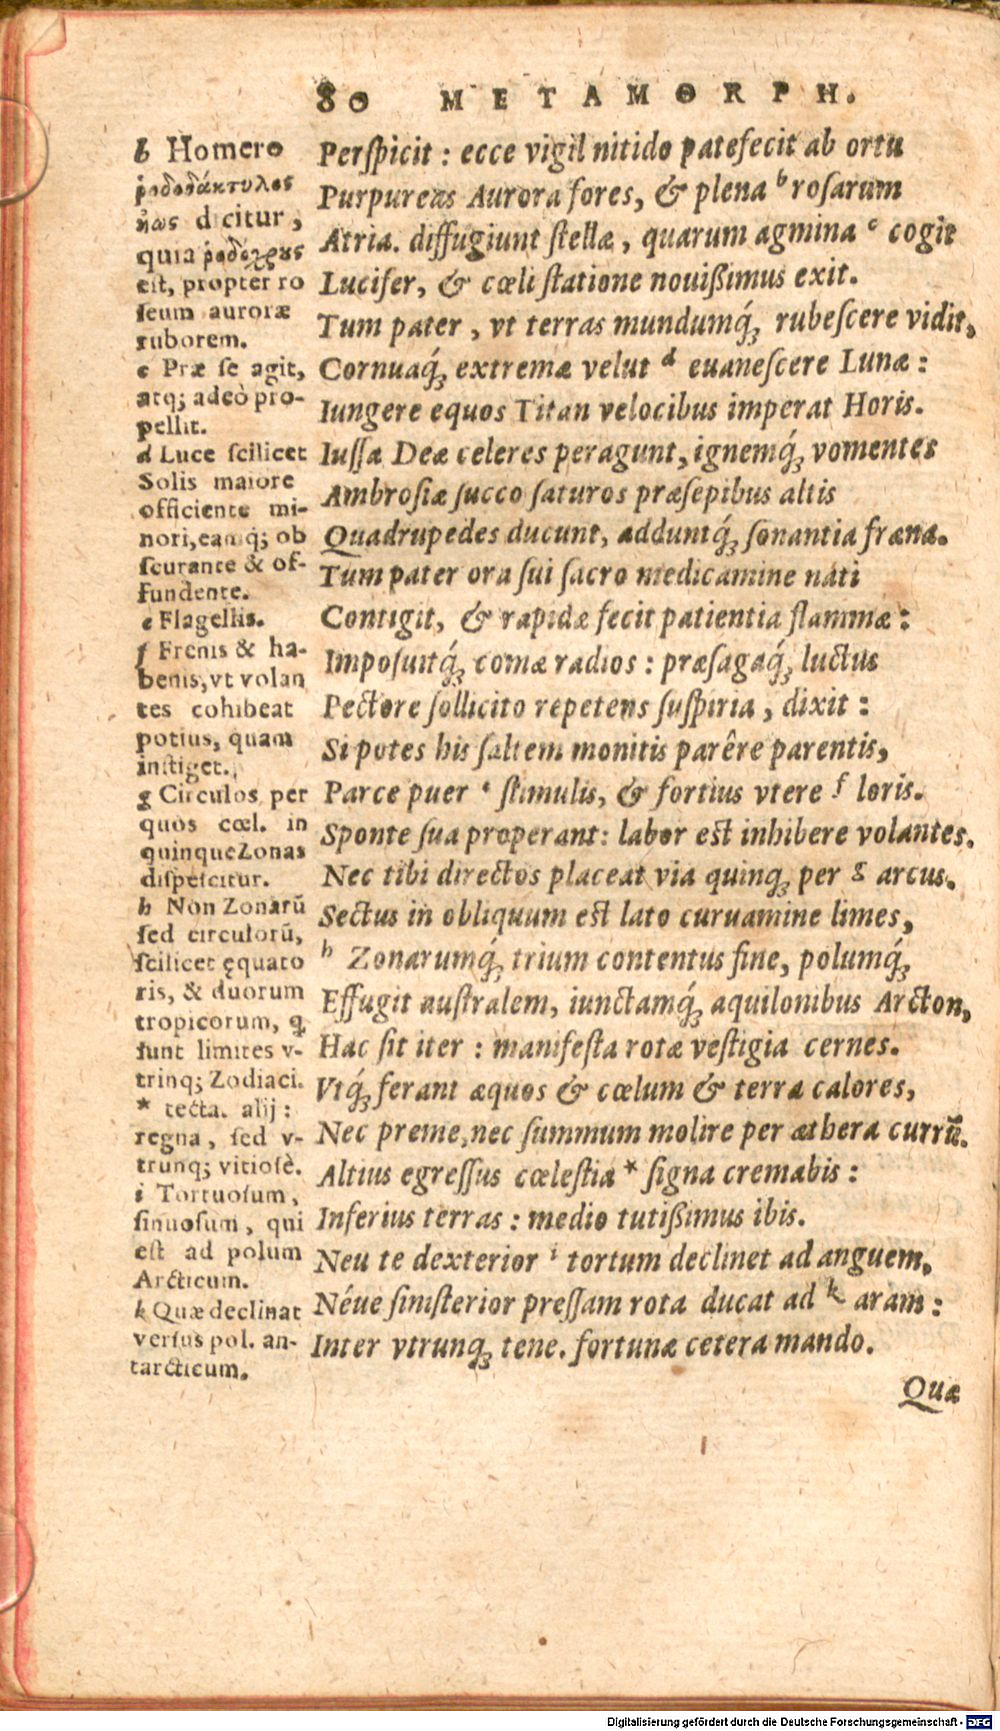 80 METAMORPH.
b Homero
ῥοδοδάκτυλος
ἠὼς dicitur,
quia ῥοδόχρους
est, propter ro
seum auroræ
ruborem.
c Præ se agit,
atq; adeò pro-
pellit.
d Luce scilicet
Solis maiore
officiente mi-
nori, eamq́; ob
scurante & of-
fundente.
e Flagellis.
f Frenis & ha-
benis, vt volan
tes cohibeat
potius, quam
instiget.
g Circulos per
quos cœl. in
quinque Zonas
dispescitur.
h Non Zonarũ
sed circulorũ,
scilicet ęquato
ris, & duorum
tropicorum, q
sunt limites v-
trinq; Zodiaci.
* tecta. alij:
regna, sed v-
trunq; vitiosè.
i Tortuosum,
sinuosum, qui
est ad polum
Arcticum.
k Quæ declinat
versus pol. an-
tarcticum.
Perſpicit : ecce vigil nitido patefecit ab ortu
Purpureas Aurora fores, & plena b roſarum
Atria. diffugiunt ſtellæ, quarum agmina c cogit
Lucifer, & cœli ſtatione nouißimus exit.
Tum pater, vt terras mundumq́; rubeſcere vidit,
Cornuaq́; extremæ velut d euaneſcere Lunæ:
Iungere equos Titan velocibus imperat Horis.
Iuſſa Deæ celeres peragunt, ignemq́; vomentes
Ambroſiæ ſucco ſaturos præſepibus altis
Quadrupedes ducunt, adduntq́; ſonantia fræna.
Tum pater ora ſui ſacro medicamine nati
Contigit, & rapidæ fecit patientia flammæ:
Impoſuitq́; comæ radios : præſagaq́; luctus
Pectore ſollicito repetens ſuſpiria, dixit:
Si potes his ſaltem monitis parêre parentis,
Parce puer e ſtimulis, & fortius vtere f loris.
Sponte ſua properant: labor eſt inhibere volantes.
Nec tibi directos placeat via quinq; per g arcus.
Sectus in obliquum eſt lato curuamine limes,
h Zonarumq́; trium contentus fine, polumq́;
Effugit auſtralem, iunctamq́; aquilonibus Arcton,
Hac ſit iter : manifeſta rotæ veſtigia cernes.
Vtq́; ferant æquos & cœlum & terra calores,
Nec preme, nec ſummum molire per æthera currũ.
Altius egreſſus cœleſtia * ſigna cremabis:
Inferius terras : medio tutißimus ibis.
Neu te dexterior i tortum declinet ad anguem,
Néue ſiniſterior preſſam rota ducat ad k aram:
Inter vtrunq; tene. fortunæ cetera mando.
Quæ
Digitalisierung gefördert durch die Deutsche Forschungsgemeinschaft - DFG